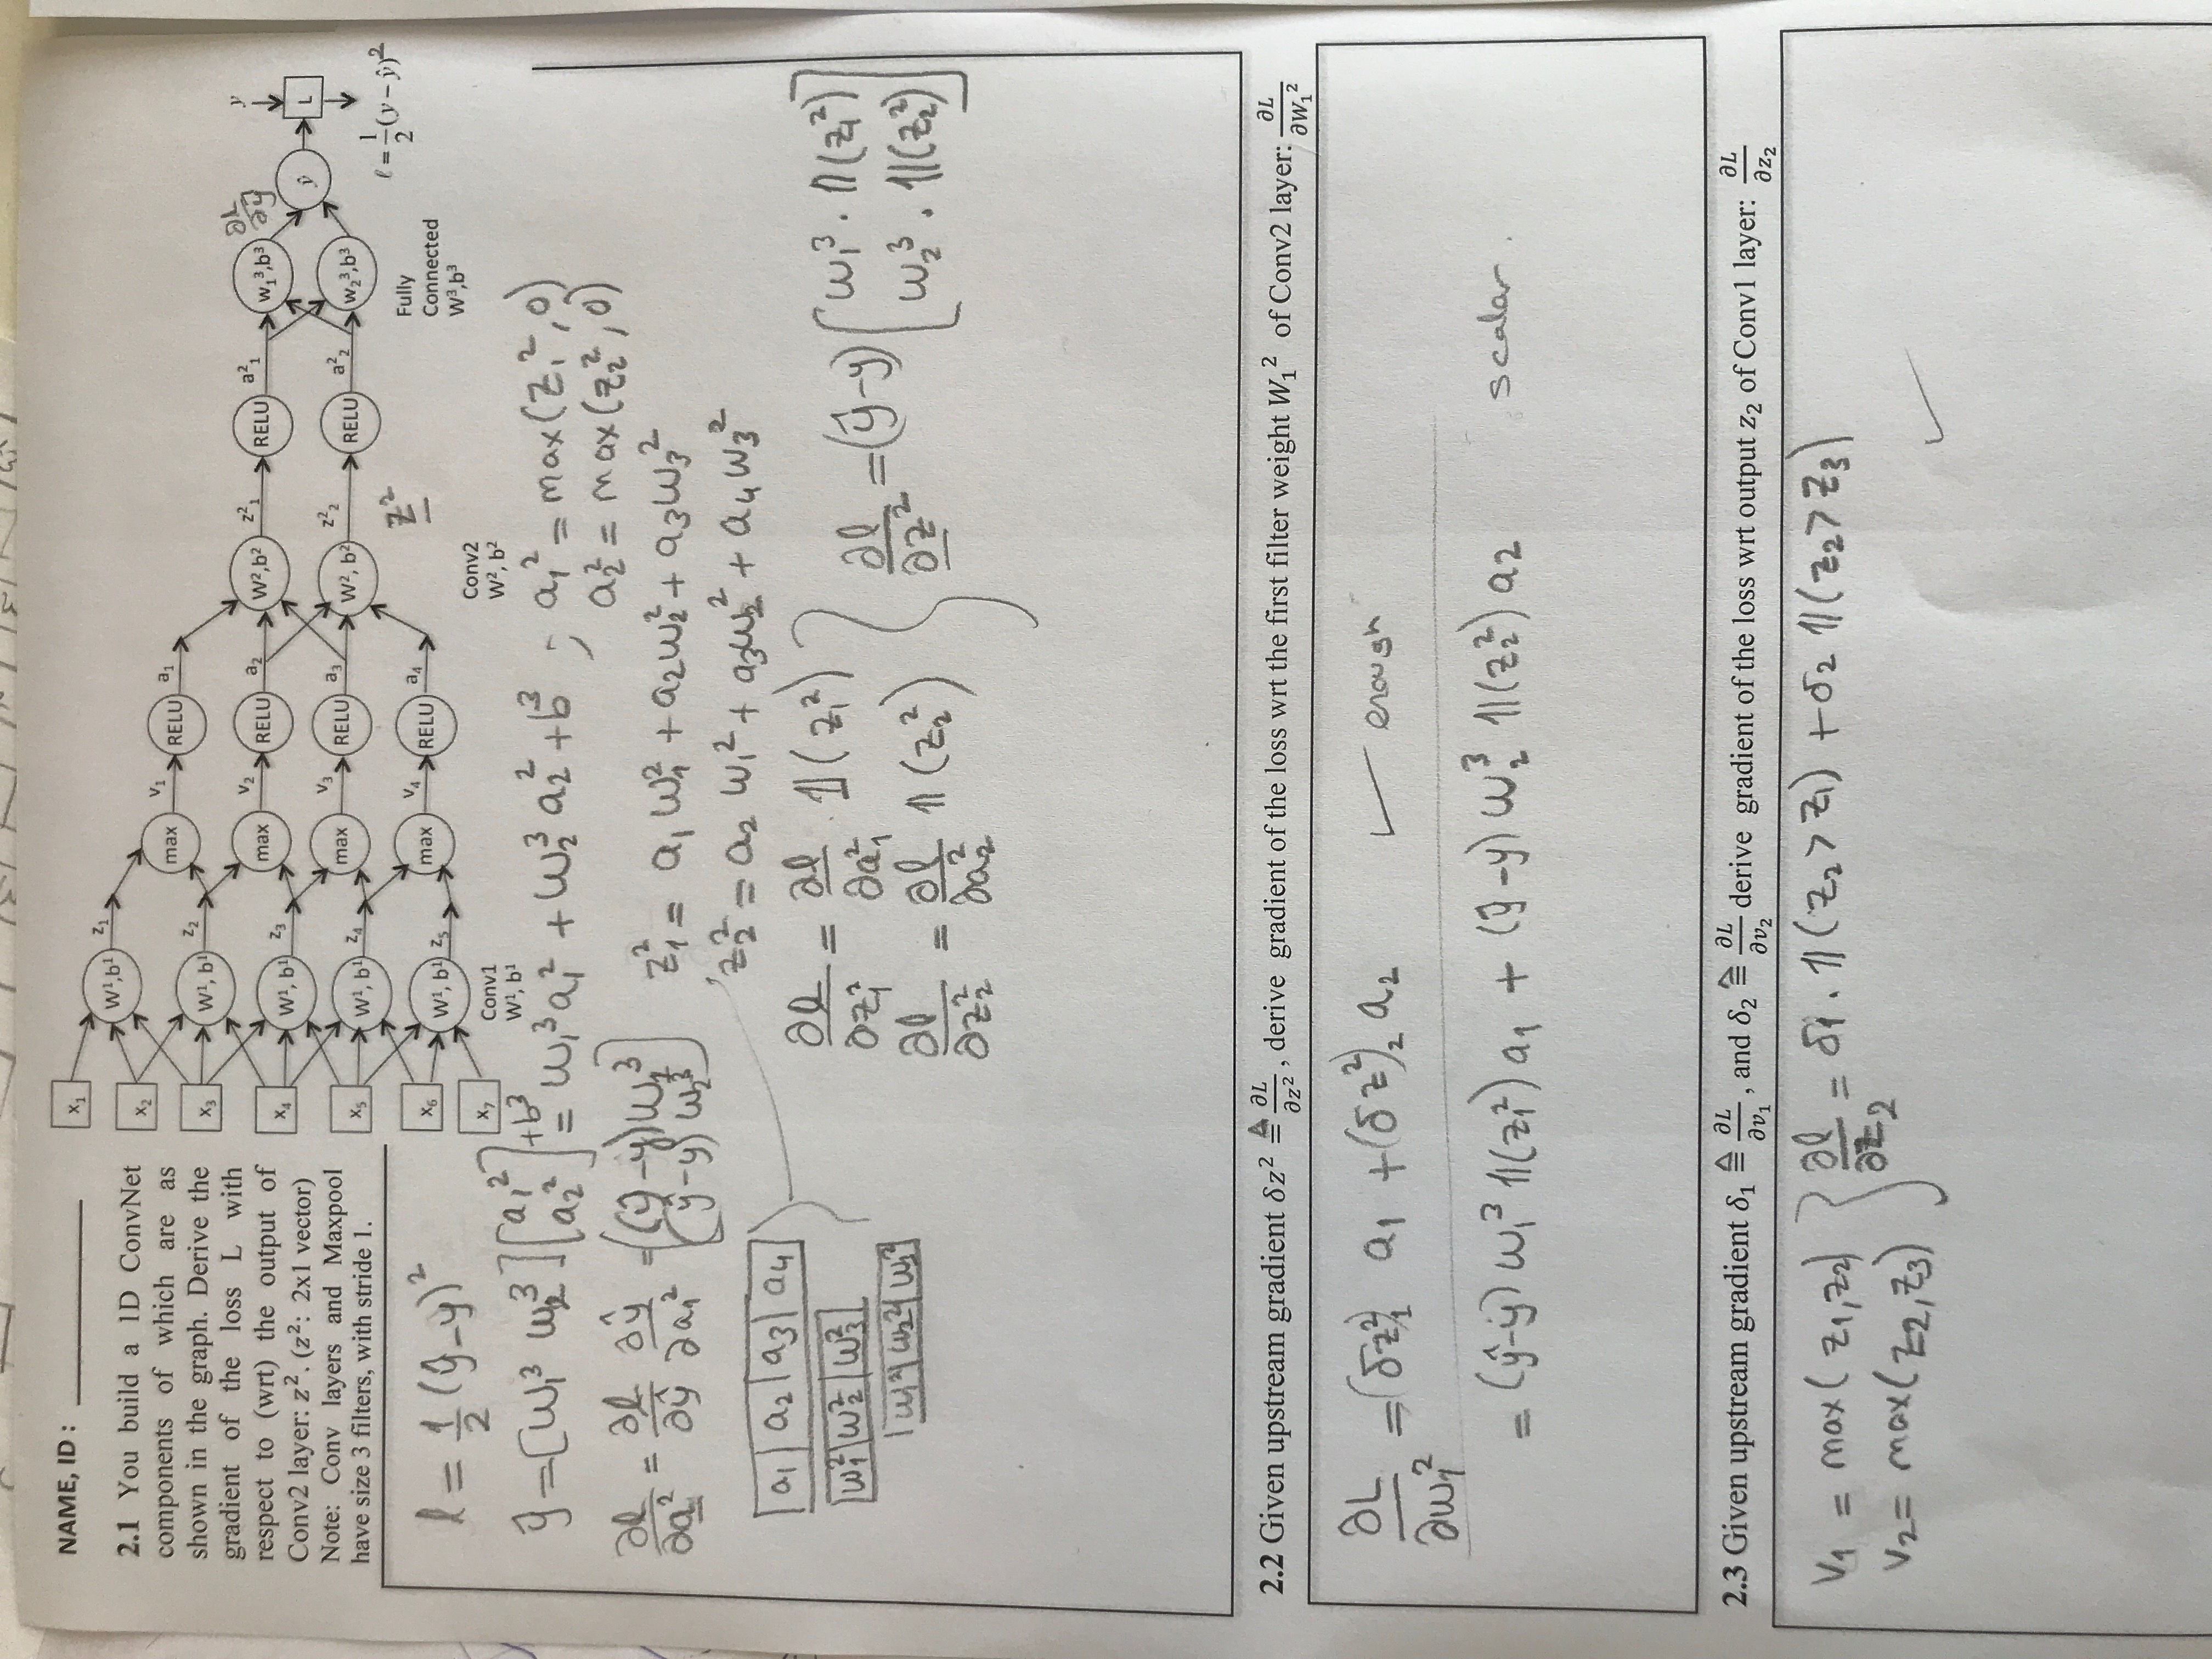 NAME, ID :
2.1 You build a 1D ConvNet
components of which are as
shown in the graph. Derive the
gradient of the loss L with
respect to (wrt) the output of
Conv2 layer: z². (z²: 2x1 vector)
Note: Conv layers and Maxpool
have size 3 filters, with stride 1.
x₁
x₂
x₃
x₄
x₅
x₆
x₇
W¹,b¹
W¹, b¹
W¹, b¹
W¹, b¹
W¹, b¹
z₁
z₂
z₃
z₄
z₅
Conv1
W¹, b¹
max
max
max
max
v₁
v₂
v₃
v₄
RELU
RELU
RELU
RELU
a₁
a₂
a₃
a₄
W²,b²
W², b²
Conv2
W², b²
z²₁
z²₂
z²
RELU
RELU
a²₁
a²₂
w₁³,b³
w₂³,b³
Fully
Connected
W³,b³
∂l/∂ŷ
ŷ
y
L
ℓ = 1/2 (y − ŷ)²
l = 1/2 (ŷ-y)²
ŷ = [w₁³ w₂³] [a₁² a₂²] + b³ = w₁³ a₁² + w₂³ a₂² + b³ ; a₁² = max(z₁², 0)
a₂² = max(z₂², 0)
∂l/∂a² = ∂l/∂ŷ ∂ŷ/∂a₁² = [(ŷ-y)w₁³ (ŷ-y)w₂³]
z₁² = a₁ w₁² + a₂w₂² + a₃w₃²
z₂² = a₂ w₁² + a₃w₂² + a₄w₃²
a₁ a₂ a₃ a₄
w₁² w₂² w₃²
w₁² w₂² w₃²
∂l/∂z₁² = ∂l/∂a₁² . 𝟙(z₁²)
∂l/∂z₂² = ∂l/∂a₂² 𝟙(z₂²)
∂l/∂z² = (ŷ-y) [w₁³ . 𝟙(z₁²) w₂³ . 𝟙(z₂²)]
2.2 Given upstream gradient δz² ≜ ∂L/∂z² , derive gradient of the loss wrt the first filter weight W₁² of Conv2 layer: ∂L/∂W₁²
∂L/∂w₁² = (δz²)₁ a₁ + (δz²)₂ a₂ ✓ enough
= (ŷ-y) w₁³ 𝟙(z₁²) a₁ + (ŷ-y) w₂³ 𝟙(z₂²) a₂ scalar.
2.3 Given upstream gradient δ₁ ≜ ∂L/∂v₁ , and δ₂ ≜ ∂L/∂v₂ derive gradient of the loss wrt output z₂ of Conv1 layer: ∂L/∂z₂
v₁ = max(z₁,z₂)
v₂ = max(z₂,z₃)
∂l/∂z₂ = δ₁ . 𝟙(z₂>z₁) + δ₂ 𝟙(z₂>z₃)
✓